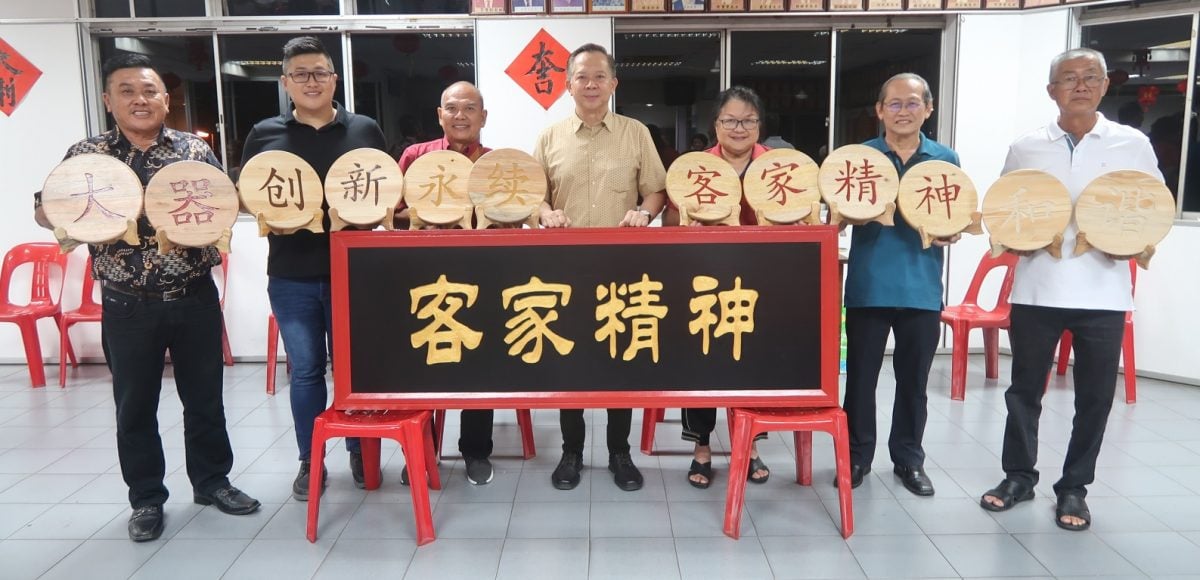 大吉
大器创新永续客家精神和谐
客家精神